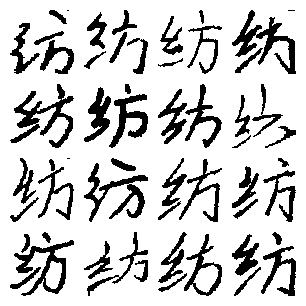 纺纺纺纺
纺纺纺纺
纺纺纺纺
纺纺纺纺